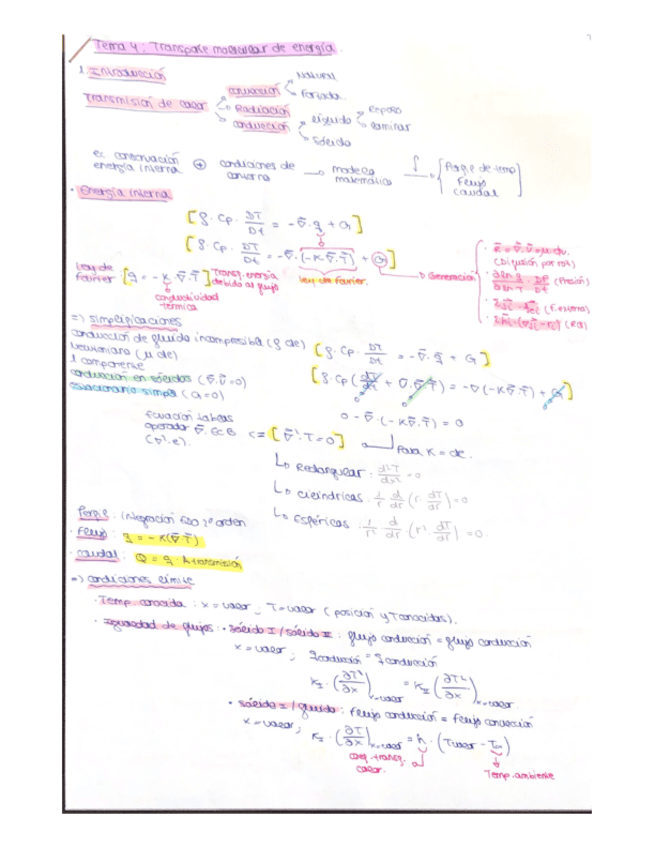 Tema 4: Transporte molecular de energía.
1. Introducción
Transmisión de calor
convección
Natural
Forzada
Radiación
conducción
líquido
Reposo
laminar
sólido
ec conservación energía interna ⊕ condiciones de contorno → modelo matemático ∫ → [Perfil de temp
Flujo
caudal]
· Energía interna
[ρ·Cp· DT/Dt = -∇̄·q̄ + G]
[ρ·Cp· DT/Dt = -∇̄·(-K∇̄·T̄) + G]
Ley de Fourier: [q = -K·∇̄·T̄] Transf. energía debida al flujo
conductividad térmica
Ley de Fourier.
Generación
(Difusión por rot)
(Presión)
(F. externa)
(RQ)
=) simplificaciones
conducción de fluido incompresible (ρ cte)
newtoniano (μ cte)
1 componente
conducción en sólidos (∇̄·v̄=0)
estacionario simple (G=0)
[ρ·Cp· DT/Dt = -∇̄·q̄ + G]
0 - ∇̄·(-K∇̄·T̄) = 0
Para K = cte.
[∇²·T=0]
Rectangular: d²T/dx² = 0
Cilíndricas: 1/r d/dr (r· dT/dr) = 0
Esféricas: 1/r² · d/dr (r² · dT/dr) = 0.
Perfil: integración EDO 2º orden
· Flujo: q = -K(∇̄T̄)
· caudal: Q = q · A transmisión
=) condiciones límite
· Temp. conocida: x = valor; T = valor (posición y T conocidas).
· Igualdad de flujos: · sólido I / sólido II: flujo conducción = flujo conducción
x = valor; q conducción = q conducción
K_I · (∂T¹/∂x) x=valor = K_II (∂T²/∂x) x=valor
· sólido I / fluido: flujo conducción = flujo convección
x = valor; K_I · (∂T/∂x) x=valor = h · (Tvalor - T∞)
coef. transf. calor.
Temp. ambiente